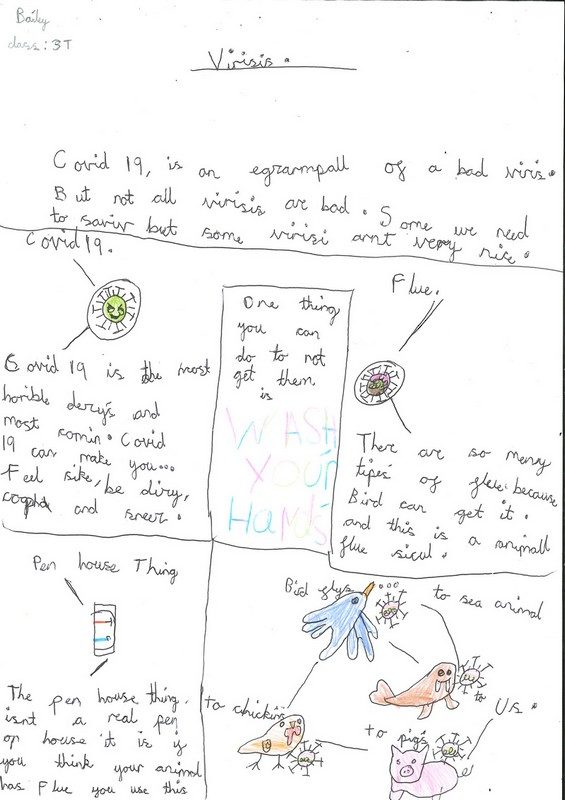 Bailey
class: 3T
Virisis.
Covid 19, is an egrampall of a bad viris.
But not all virisis are bad. Some we need
to saviv but some virisi arnt very nise.
Covid 19.
Covid 19 is the most
horible derys and
most comin. Covid
19 can make you...
Feel sike, be diry,
and sneer.
One thing
you can
do to not
get them
is
WASH
YOUR
HaNdS
Flue.
There are so meny
tipes of flue because
Bird can get it.
and this is a animall
flue sicul.
Pen house Thing
The pen house thing.
isnt a real pen
or house it is if
you think your animal
has Flue you use this
Bird flys...
to sea animal
to chickin
to pigs
to
Us.